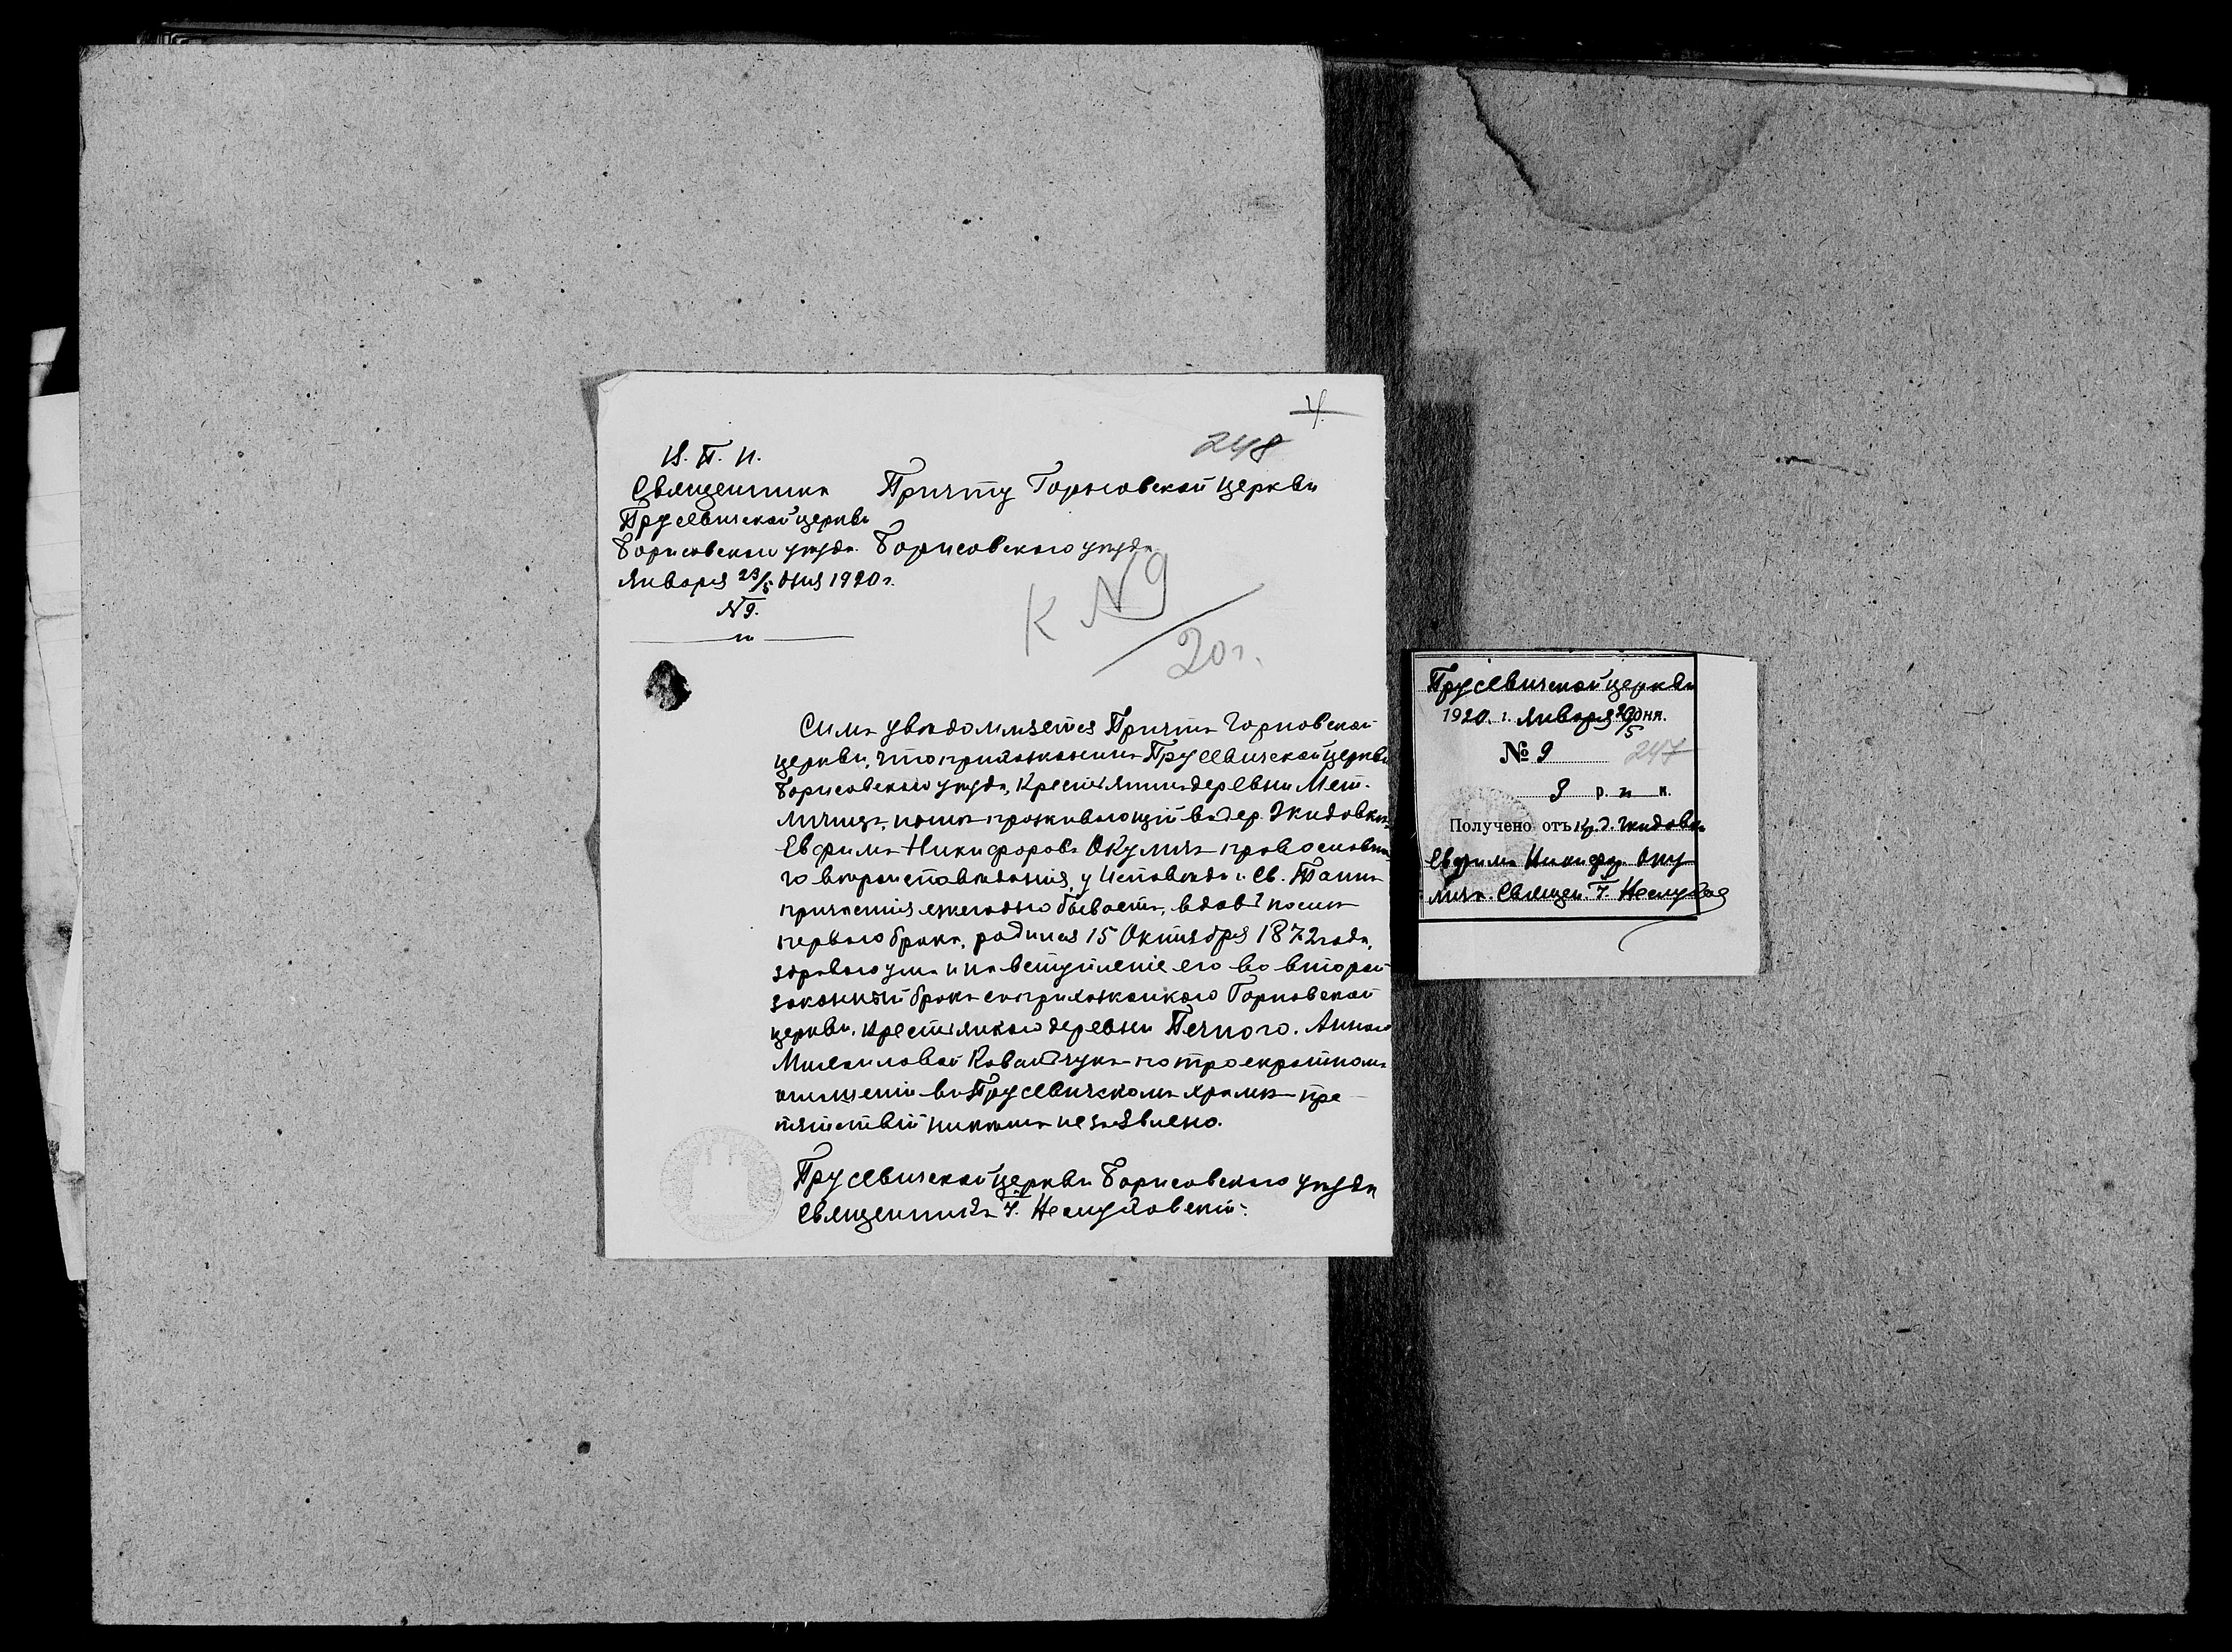 4.
248
В. П. И.
Священника
Трусевичской церкви
Борисовскаго уѣзда.
Января 23/5 дня 1920 г.
№ 9.
Причту Горновской Церкви
Борисовского уѣзда
К № 9
20 г.
Симъ увѣдомляется Причтъ Горновской
церкви, что прихожанинъ Трусевичской церкви
Борисовскаго уѣзда, крестьянинъ деревни Мет-
личицъ, нынѣ проживающій въ дер. Жидовкѣ
Евфимъ Никифоровъ Окуличъ православна-
го вѣроисповѣданія, у Исповѣди и Св. Таинъ
причастія ежегодно бываетъ, вдовъ послѣ
перваго брака, родился 15 Октября 1872 года,
здраваго ума и на вступленіе его во второй
законный бракъ съ прихожанкою Горновской
церкви, крестьянкою деревни Печного. Анною
Михаиловой Ковальчукъ по троекратномъ
оглашеніи въ Трусевичскомъ храмѣ пре-
пятствій никакихъ не заявлено.
Трусевичской церкви Борисовскаго уѣзда
Священникъ І.
Трусевичской церкви
1920 г. Января 23/5 дня.
№ 9
247
9 р. к.
Получено отъ кр. д. Жидовки
Евфима Никифор. Оку-
лича. Священ. І.